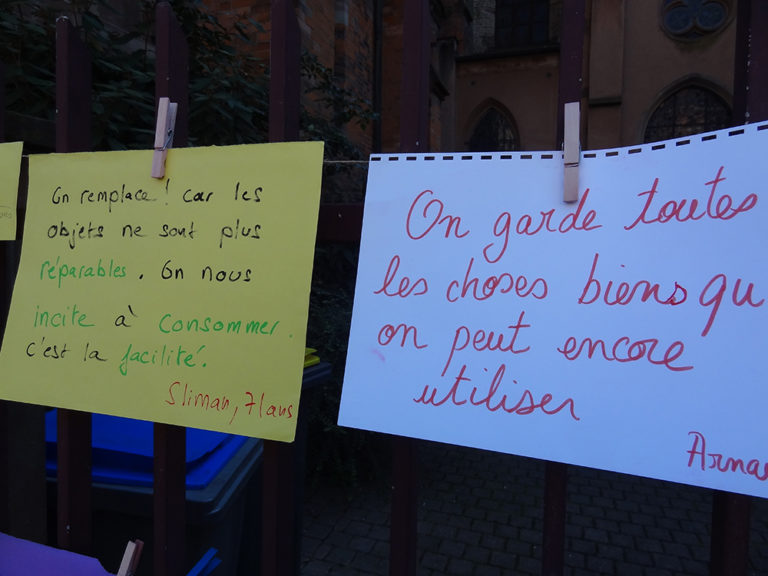 On remplace! car les
objets ne sont plus
réparables. On nous
incite à consommer
c'est la facilité.
Sliman, 71ans
On garde toutes
les choses biens qu
on peut encore
utiliser
Arnau